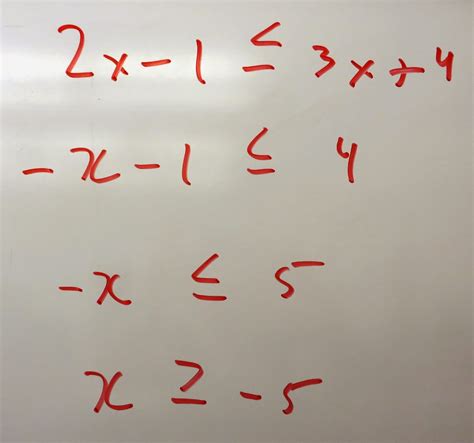 2x - 1 ≤ 3x + 4
-x - 1 ≤ 4
-x ≤ 5
x ≥ -5